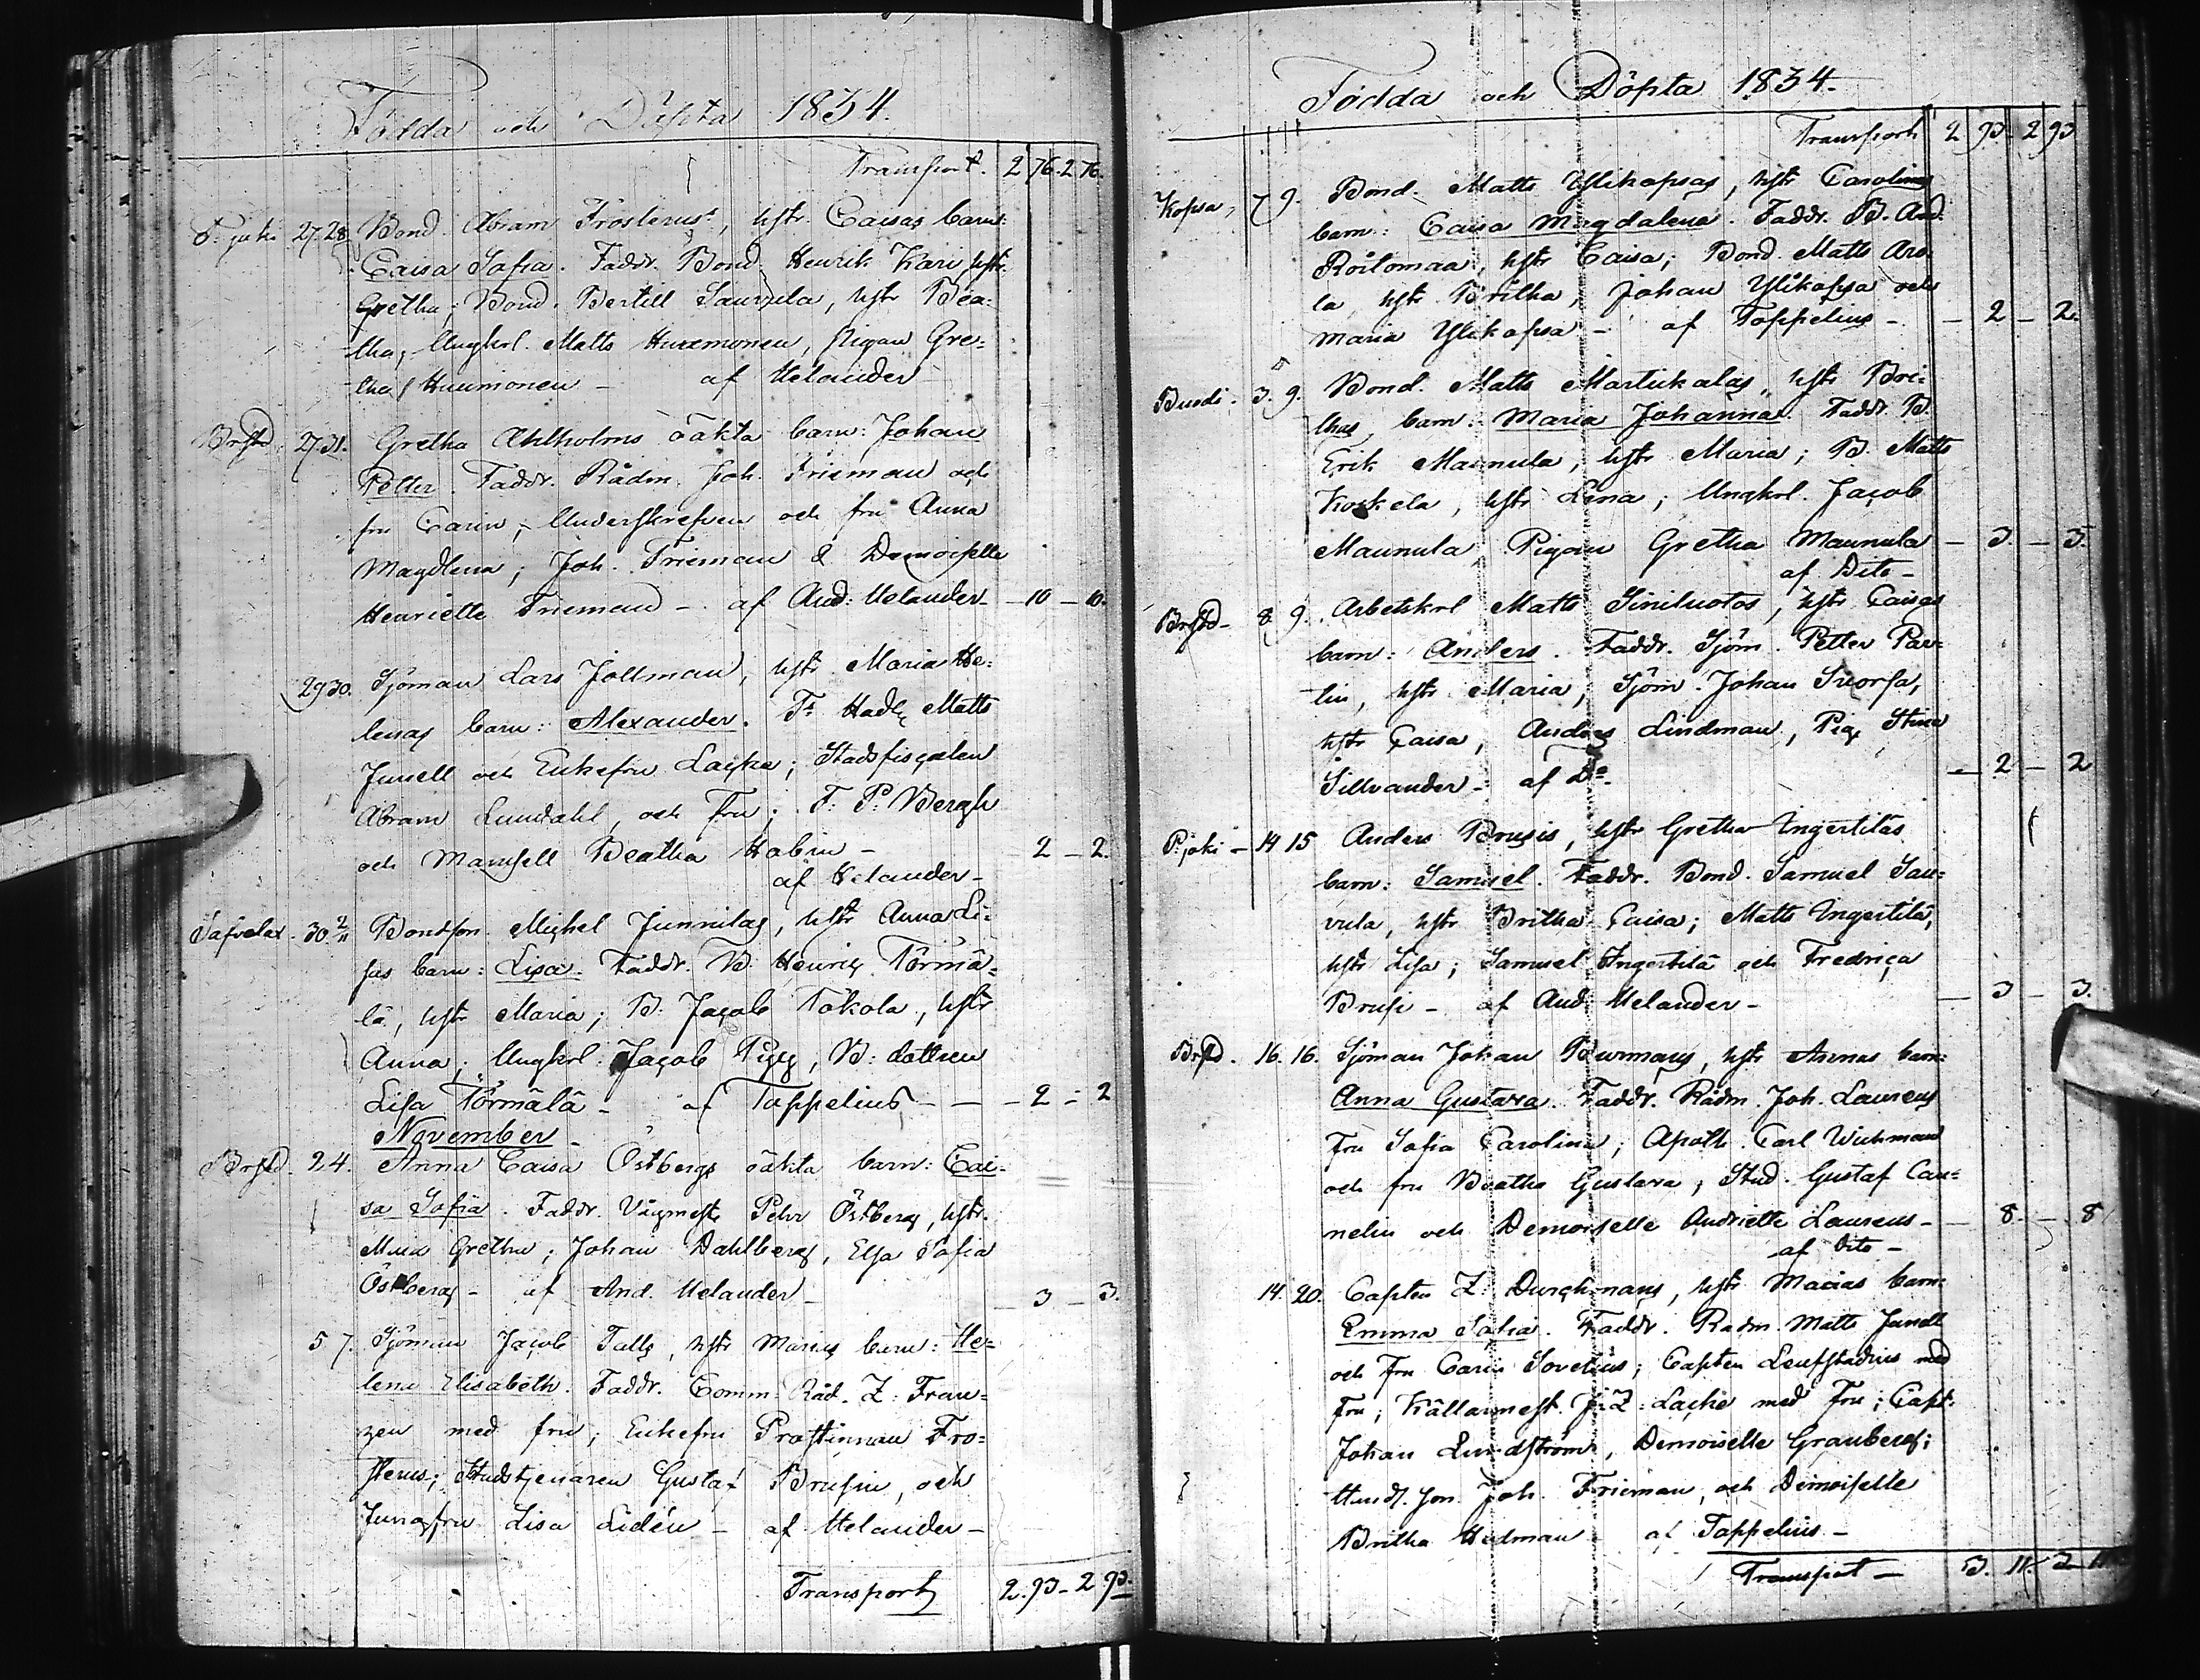 Födda och Döpta 1834.
Transport. 2 76. 2 76.
P. joki 27. 28. Bond. Abram Frösterus, hstr. Caisas barn:
Caisa Sofia. Faddr. Bond. Henrik Kari, hstr.
Gretha; Bond. Bertill Sauvula, hstr Bea-
tha; Ungkrl. Matts Huumonen, Pigan Gre-
tha Huumonen - af Helander
Brstd 27 31. Gretha Ahlholms oäkta barn: Johan
Petter. Faddr. Rådm. Joh. Frieman och
fru Carin; Underskrefven och fru Anna
Magdlena; Joh. Frieman & Demoiselle
Henriette Frieman - af And: Helander - 10 - 10.
29 30. Sjöman Lars Jollman, hstr. Maria He-
lenas barn: Alexander. Fr Hadl Matts
Junell och Enkefru Lacke; Stadsfiscalen
Abram Lundahl, och Fru; F: P: Bergh
och Mamsell Beatha Holm - 2 - 2.
af Helander -
Safvelax. 30. 2/11 Bondson Michel Junnilas, hstr Anna Li-
sas barn: Lisa. Faddr. B. Henric Törmä-
lä, hstr Maria; B. Jacob Tokola, hstr
Anna; Ungkrl. Jacob Pigg, B: dottren
Lisa Törmälä - af Toppelius - - 2 - 2
November -
Brstd. 2 4. Anna Caisa Östbergs oäkta barn: Cai-
sa Sofia. Faddr. Vågmest. Pehr Östberg, hstr.
Maria Gretha; Johan Dahlberg, Elsa Sofia
Östberg - af And. Helander - 3 - 3.
5 7. Sjöman Jacob Talls, hstr Marias barn: He-
lena Elisabeth. Faddr. Comm: Råd. Z. Fran-
zen med fru; Enkefru Prostinnan Fro-
sterus; Studstjenaren Gustaf Brusin, och
Jungfru Lisa Lidén - af Helander -
Transport 2. 93 - 2 93.
Födda och Döpta 1834.
Transport 2 93 - 2 93
Kopsa, 7 9. Bond. Matts Ylikopsas, hstr Carolinas
barn: Caisa Magdalena. Faddr. B. And.
Roiloman, hstr Caisa; Bond. Matts Aro-
la, hstr Britha, Johan Ylikopsa och
Maria Ylikopsa - af Toppelius - - 2 - 2.
3. 9. Bond. Matts Martukalas, hstr Bri-
thas, barn: Maria Johanna. Faddr. B.
Erik Maunula, hstr Maria; B. Matts
Koskela, hstr Lena; Ungkrl. Jacob
Maunula, Pigan Gretha Maunula - 3. - 3.
af Dito -
Brstd - 8 9. Arbetskrl Matts Siniluotos, hstr Caisas
barn: Anders. Faddr. Sjöm. Petter Pav-
lin, hstr Maria; Sjöm. Johan Snorsa,
hstr Caisa, Anders Lindman, Pig. Stina
Sillvander - af Do. - 2 - 2
P. joki - 14 15 Anders Brusis, hstr Gretha Ingertiläs
barn: Samuel. Faddr. Bond. Samuel Sau-
vula, hstr Britha Caisa; Matts Ingertilä,
hstr Lisa; Samuel Ingertilä och Fredrica
Brusi - af And. Helander - - 3 - 3.
Brstd. 16. 16. Sjöman Johan Burmans, hstr Annas barn:
Anna Gustava. Faddr. Rådm. Joh. Laurens
Fru Sofia Carolina; Apoth. Carl Wichman
och fru Beatha Gustava; Stud. Gustaf Can-
nelin och Demoiselle Andriette Laurens - 8. - 8
af Dito -
14. 20. Capten Z: Durchmans, hstr Marias barn:
Emma Sofia. Faddr. Rådm. Matts Junell
och Fru Carin Sovelius; Capten Leufstadius med
Fru; Källarmest. J: Z: Lacke med Fru; Capt.
Johan Lundström, Demoiselle Granberg;
Handl. son Joh. Frieman, och Demoiselle
Britha Hedman - af Toppelius -
Transport - 3. 11. 3 11